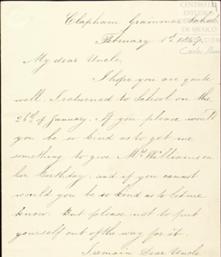 Clapham Grammar School
February 1st 1847
My dear Uncle,
I hope you are quite
well. I returned to School on the
26th of January. If you please would
you be so kind as to get me
something to give Mrs Williamson
her birthday, and if you cannot
would you be so kind as to let me
know. But please not to put
yourself out of the way for it.
I remain Dear Uncle